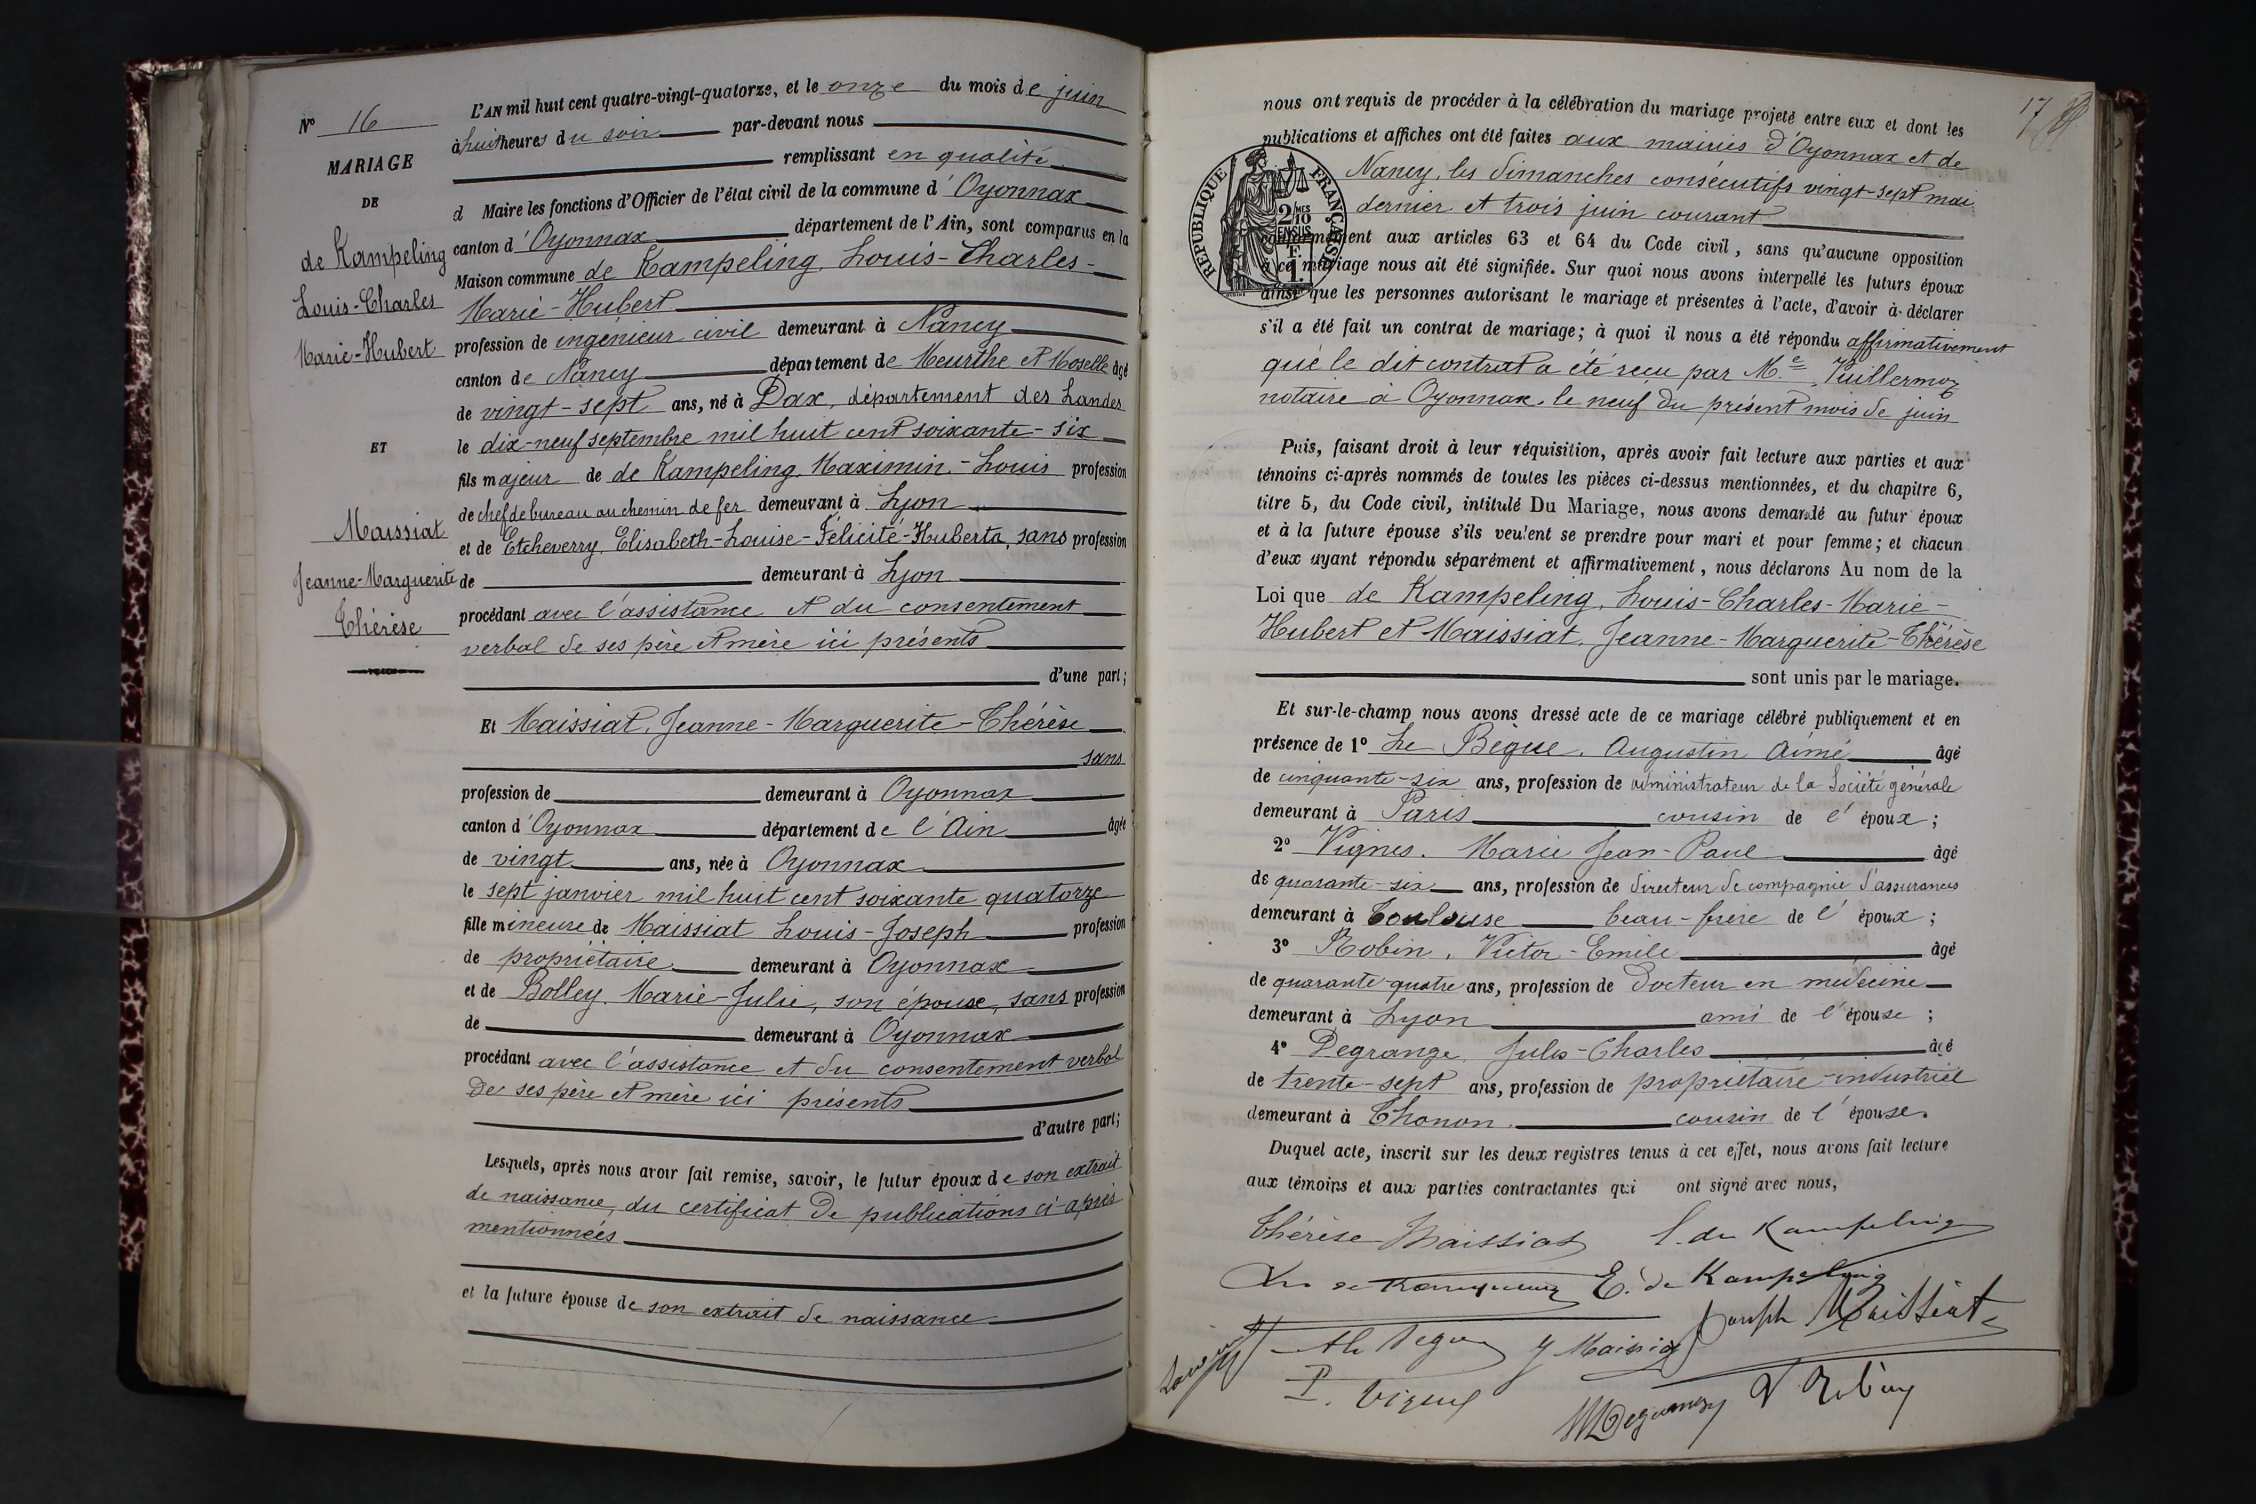 N° 16
MARIAGE
DE
de Kampeling
Louis-Charles
Marie-Hubert
ET
Maissiat
Jeanne-Marguerite
Thérèse
L'AN mil huit cent quatre-vingt-quatorze, et le onze du mois de juin
à huit heures du soir par-devant nous
remplissant en qualité
d Maire les fonctions d'Officier de l'état civil de la commune d'Oyonnax
canton d'Oyonnax département de l'Ain, sont comparus en la
Maison commune de Kampeling, Louis-Charles-
Marie-Hubert
profession de ingénieur civil demeurant à Nancy
canton de Nancy département de Meurthe et Moselle âgé
de vingt-sept ans, né à Dax, département des Landes
le dix-neuf septembre mil huit cent soixante-six
fils majeur de de Kampeling, Maximin-Louis profession
de chef de bureau au chemin de fer demeurant à Lyon
et de Etcheverry, Elisabeth-Louise-Félicité-Huberta, sans profession
de demeurant à Lyon
procédant avec l'assistance et du consentement
verbal de ses père et mère ici présents
d'une part;
Et Maissiat, Jeanne-Marguerite-Thérèse
sans
profession de demeurant à Oyonnax
canton d'Oyonnax département de l'Ain âgée
de vingt ans, née à Oyonnax
le sept janvier mil huit cent soixante quatorze
fille mineure de Maissiat Louis-Joseph profession
de propriétaire demeurant à Oyonnax
et de Bolley, Marie-Julie, son épouse, sans profession
de demeurant à Oyonnax
procédant avec l'assistance et du consentement verbal
de ses père et mère ici présents
d'autre part;
Lesquels, après nous avoir fait remise, savoir, le futur époux de son extrait
de naissance, du certificat de publications ci-après
mentionnées
et la future épouse de son extrait de naissance
17
nous ont requis de procéder à la célébration du mariage projeté entre eux et dont les
publications et affiches ont été faites aux mairies d'Oyonnax et de
Nancy, les dimanches consécutifs vingt-sept mai
dernier et trois juin courant
RÉPUBLIQUE FRANÇAISE
2/10 MES
EN SUS
1 F.
conformément aux articles 63 et 64 du Code civil, sans qu'aucune opposition
à ce mariage nous ait été signifiée. Sur quoi nous avons interpellé les futurs époux
ainsi que les personnes autorisant le mariage et présentes à l'acte, d'avoir à déclarer
s'il a été fait un contrat de mariage; à quoi il nous a été répondu affirmativement
que le dit contrat a été reçu par M.e Vuillermoz
notaire à Oyonnax, le neuf du présent mois de juin
Puis, faisant droit à leur réquisition, après avoir fait lecture aux parties et aux
témoins ci-après nommés de toutes les pièces ci-dessus mentionnées, et du chapitre 6,
titre 5, du Code civil, intitulé Du Mariage, nous avons demandé au futur époux
et à la future épouse s'ils veulent se prendre pour mari et pour femme; et chacun
d'eux ayant répondu séparément et affirmativement, nous déclarons Au nom de la
Loi que de Kampeling, Louis-Charles-Marie-
Hubert et Maissiat, Jeanne-Marguerite-Thérèse
sont unis par le mariage.
Et sur-le-champ nous avons dressé acte de ce mariage célébré publiquement et en
présence de 1° Le Bègue, Augustin Aimé âgé
de cinquante-six ans, profession de administrateur de la Société générale
demeurant à Paris cousin de l'époux;
2° Vignes, Marie Jean-Paul âgé
de quarante-six ans, profession de directeur de compagnie d'assurances
demeurant à Toulouse beau-frère de l'époux;
3° Robin, Victor-Emile âgé
de quarante-quatre ans, profession de Docteur en médecine
demeurant à Lyon ami de l'épouse;
4° Degrange, Jules-Charles âgé
de trente-sept ans, profession de propriétaire-industriel
demeurant à Thonon cousin de l'épouse.
Duquel acte, inscrit sur les deux registres tenus à cet effet, nous avons fait lecture
aux témoins et aux parties contractantes qui ont signé avec nous,
Thérèse Maissiat L. de Kampeling
de Kampeling E. de Kampeling
Joseph Maissiat
J Maissiat
P. Vignes
V Robin